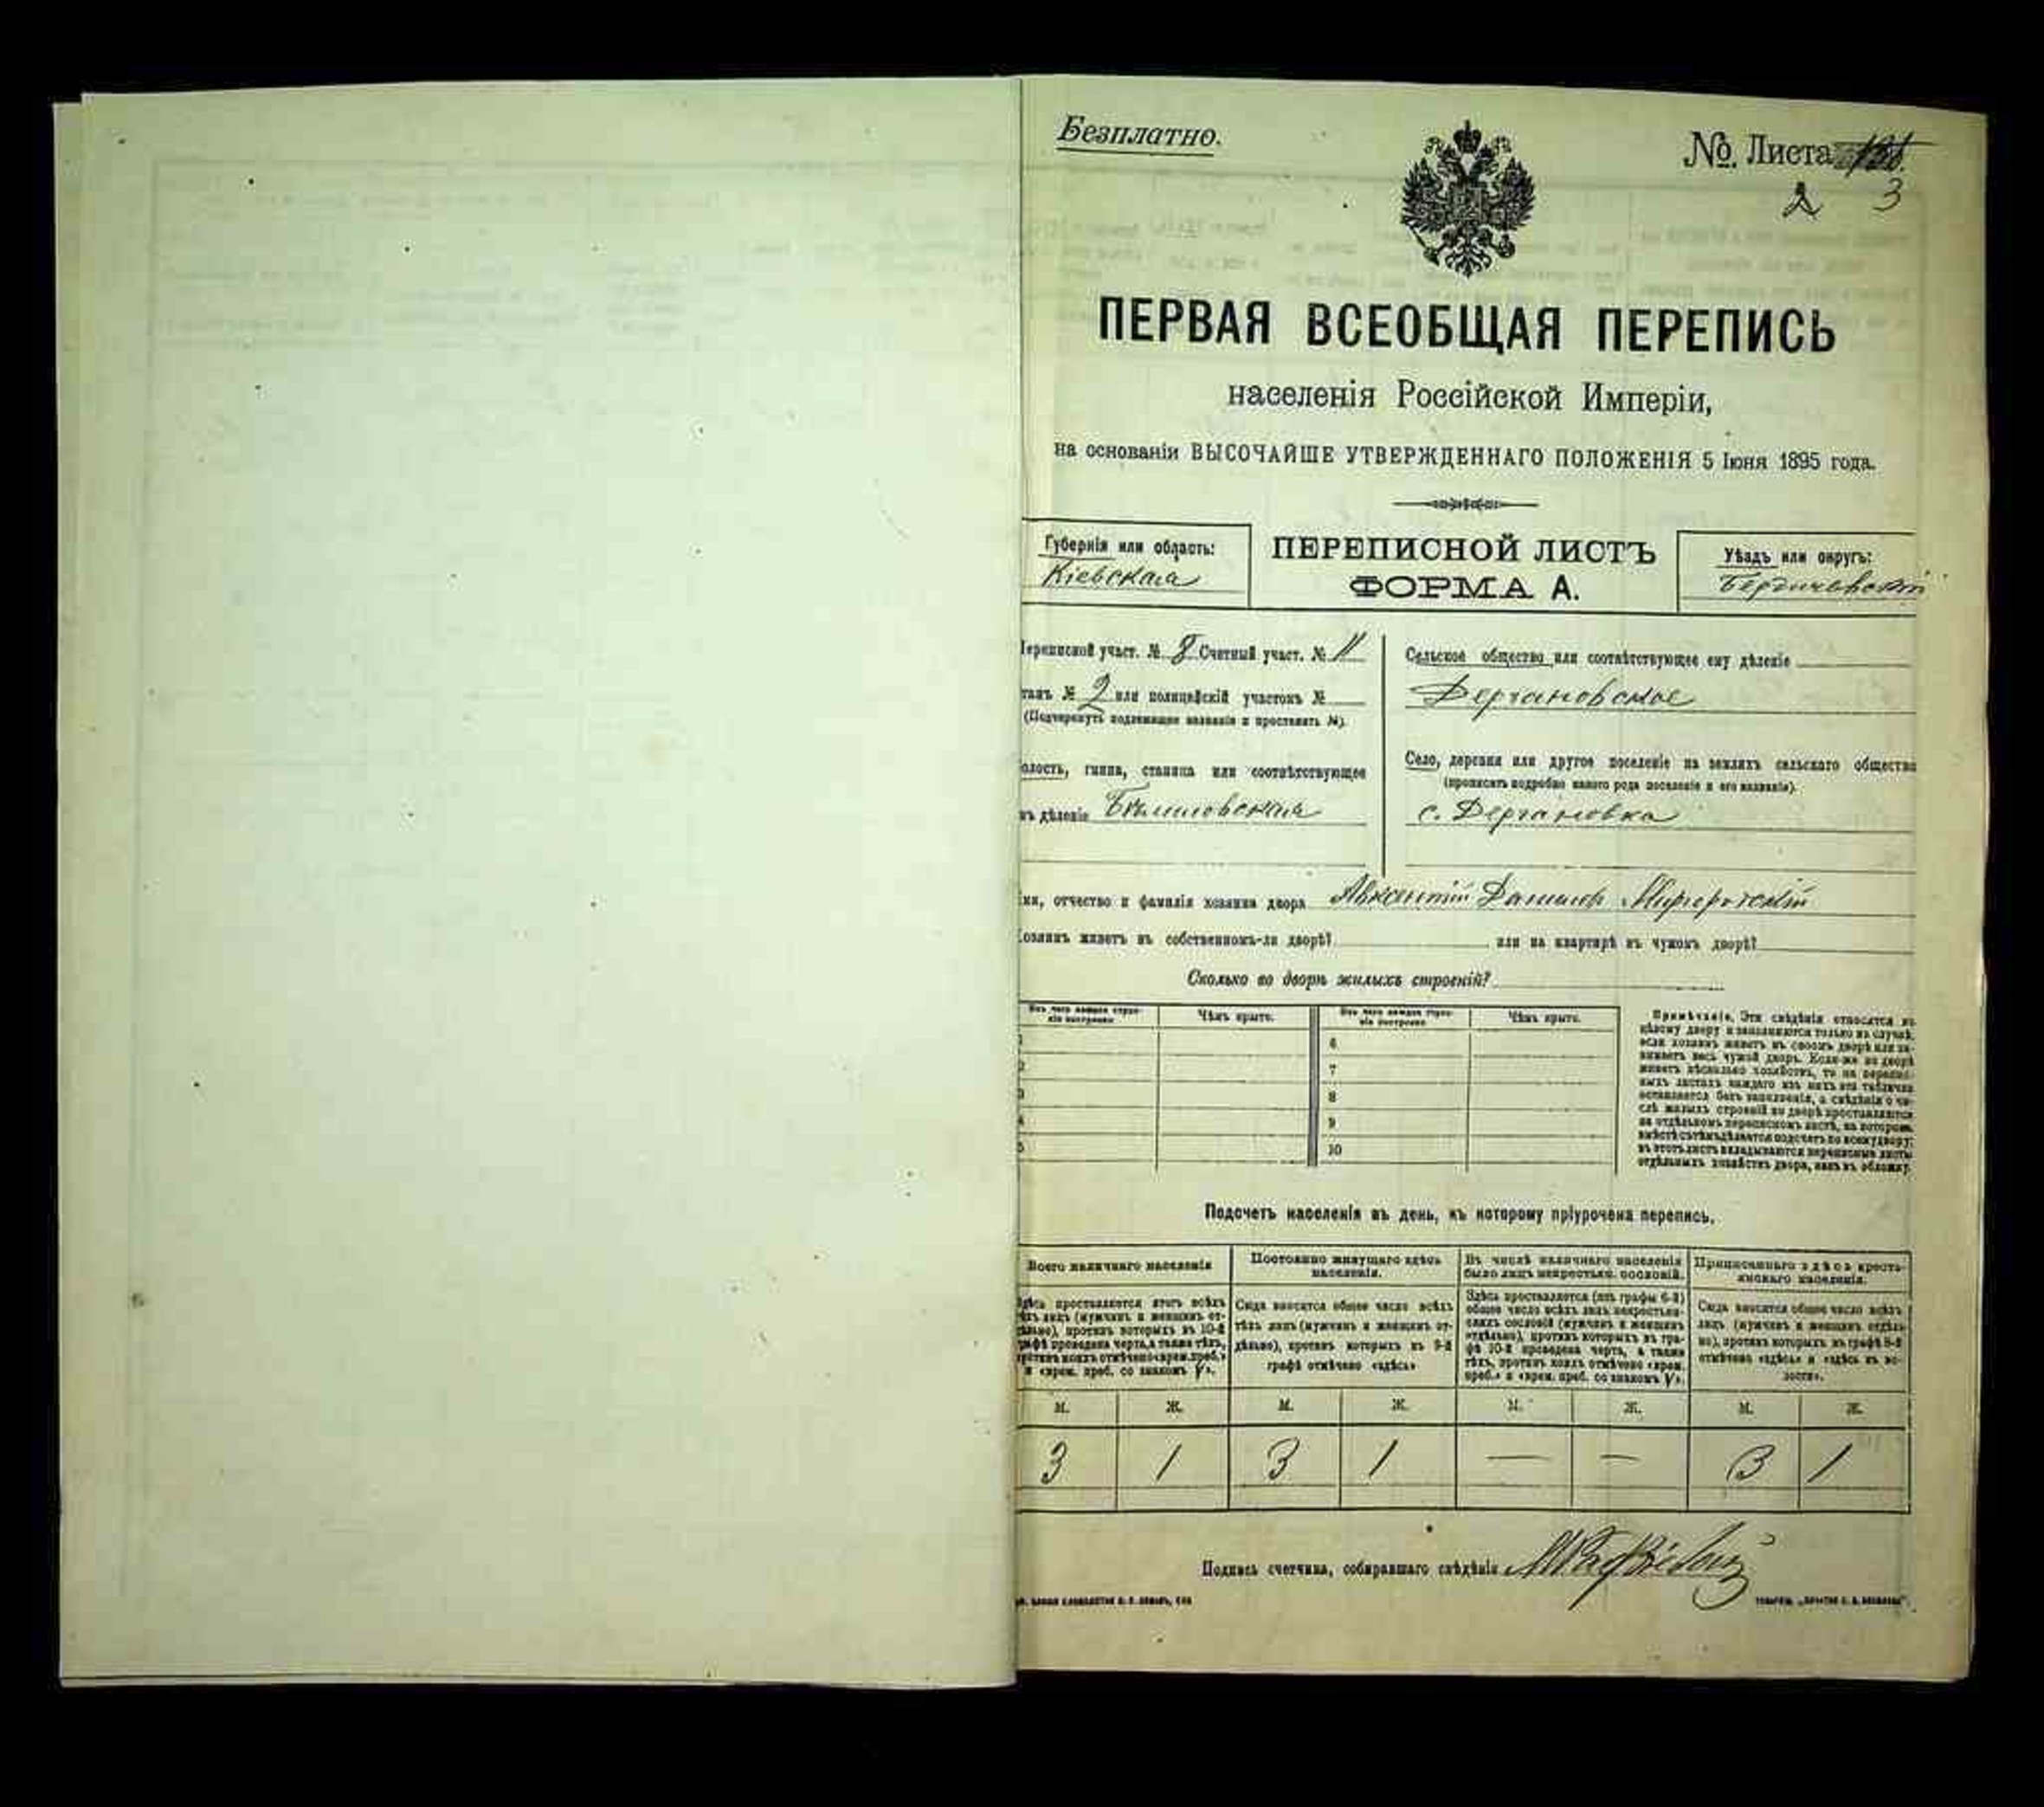 Безплатно.
№. Листа
2 3
ПЕРВАЯ ВСЕОБЩАЯ ПЕРЕПИСЬ
населенія Россійской Имперіи,
на основаніи ВЫСОЧАЙШЕ УТВЕРЖДЕННАГО ПОЛОЖЕНІЯ 5 Іюня 1895 года.
Губернія или область:
Кіевская
ПЕРЕПИСНОЙ ЛИСТЪ
ФОРМА А.
Уѣздъ или округъ:
Бердичевскій
ереписной участ. № 8 Счетный участ. № 11
танъ № 2 или полицейскій участокъ №
(Подчеркнуть подлежащее названіе и проставить №).
олость, гмина, станица или соотвѣтствующее
мъ дѣленіе Бѣлиловская
Сельское общество или соотвѣтствующее ему дѣленіе
Дергановское
Село, деревня или другое поселеніе на земляхъ сельскаго общества
(прописать подробно какого рода поселеніе и его названіе).
с. Дергановка
мя, отчество и фамилія хозяина двора
озяинъ живетъ въ собственномъ-ли дворѣ? или на квартирѣ въ чужомъ дворѣ?
Сколько во дворѣ жилыхъ строеній?
Изъ чего каждое строе-
ніе построено
Чѣмъ крыто.
Изъ чего каждое строе-
ніе построено
Чѣмъ крыто.
1
2
3
4
5
6
7
8
9
10
Примѣчаніе. Эти свѣдѣнія относятся къ
цѣлому двору и заполняются только въ случаѣ,
если хозяинъ живетъ въ своемъ дворѣ или за-
нимаетъ весь чужой дворъ. Если-же во дворѣ
живетъ нѣсколько хозяйствъ, то на перепис-
ныхъ листахъ каждаго изъ нихъ эта табличка
оставляется безъ заполненія, а свѣдѣнія о чи-
слѣ жилыхъ строеній во дворѣ проставляются
на отдѣльномъ переписномъ листѣ, на которомъ
вмѣстѣ съ тѣмъ дѣлается подсчетъ по всему двору;
въ этотъ листъ вкладываются переписные листы
отдѣльныхъ хозяйствъ двора, какъ въ обложку.
Подсчетъ населенія въ день, къ которому пріурочена перепись.
Всего наличнаго населенія
Постоянно живущаго здѣсь
населенія.
Въ числѣ наличнаго населенія
было лицъ некрестьян. сословій.
Приписаннаго здѣсь кресть-
янскаго населенія.
Здѣсь проставляется итогъ всѣхъ
тѣхъ лицъ (мужчинъ и женщинъ от-
дѣльно), противъ которыхъ въ 10-й
графѣ проведена черта, а также тѣхъ,
противъ коихъ отмѣчено «врем. преб.»
и «врем. преб. со знакомъ V».
Сюда вносится общее число всѣхъ
тѣхъ лицъ (мужчинъ и женщинъ от-
дѣльно), противъ которыхъ въ 9-й
графѣ отмѣчено «здѣсь»
Здѣсь проставляется (изъ графы 6-й)
общее число всѣхъ лицъ некрестьян-
скихъ сословій (мужчинъ и женщинъ
отдѣльно), противъ которыхъ въ гра-
фѣ 10-й проведена черта, а также
тѣхъ, противъ коихъ отмѣчено «врем.
преб.» и «врем. преб. со знакомъ V».
Сюда вносится общее число всѣхъ
лицъ (мужчинъ и женщинъ отдѣль-
но), противъ которыхъ въ графѣ 8-й
отмѣчено «здѣсь» и «здѣсь въ во-
лости».
М. Ж. М. Ж. М. Ж. М. Ж.
3 1 3 1 — — 3 1
Подпись счетчика, собиравшаго свѣдѣнія